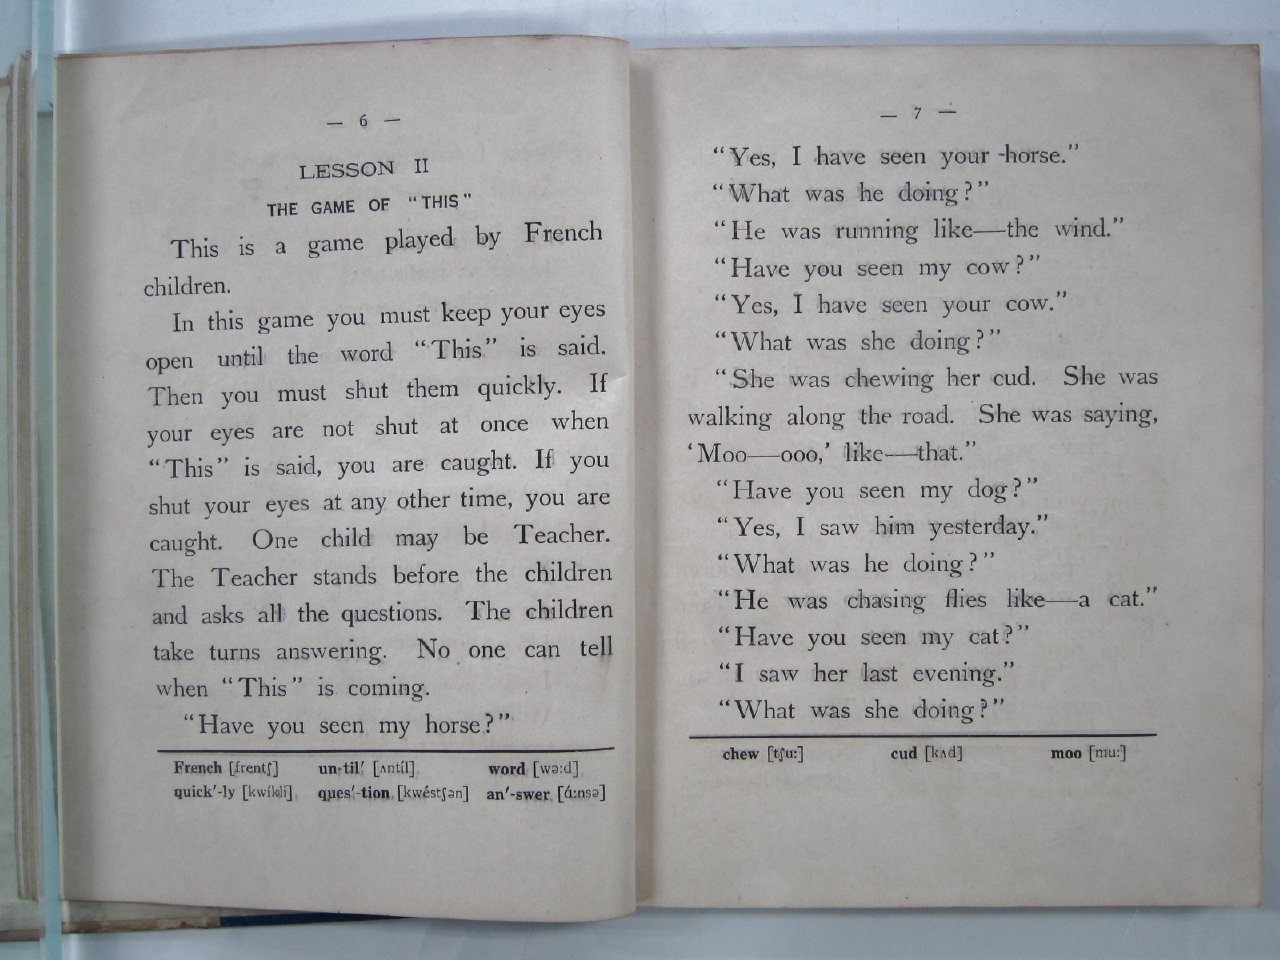 — 6 —
LESSON II
THE GAME OF “THIS”
This is a game played by French
children.
In this game you must keep your eyes
open until the word “This” is said.
Then you must shut them quickly. If
your eyes are not shut at once when
“This” is said, you are caught. If you
shut your eyes at any other time, you are
caught. One child may be Teacher.
The Teacher stands before the children
and asks all the questions. The children
take turns answering. No one can tell
when “This” is coming.
“Have you seen my horse?”
French [frentʃ] un-til′ [ʌntíl] word [wə:d]
quick′-ly [kwíkli] ques′-tion [kwéstʃən] an′-swer [ɑ́:nsə]
— 7 —
“Yes, I have seen your horse.”
“What was he doing?”
“He was running like—the wind.”
“Have you seen my cow?”
“Yes, I have seen your cow.”
“What was she doing?”
“She was chewing her cud. She was
walking along the road. She was saying,
‘Moo—ooo,’ like—that.”
“Have you seen my dog?”
“Yes, I saw him yesterday.”
“What was he doing?”
“He was chasing flies like—a cat.”
“Have you seen my cat?”
“I saw her last evening.”
“What was she doing?”
chew [tʃu:] cud [kʌd] moo [mu:]